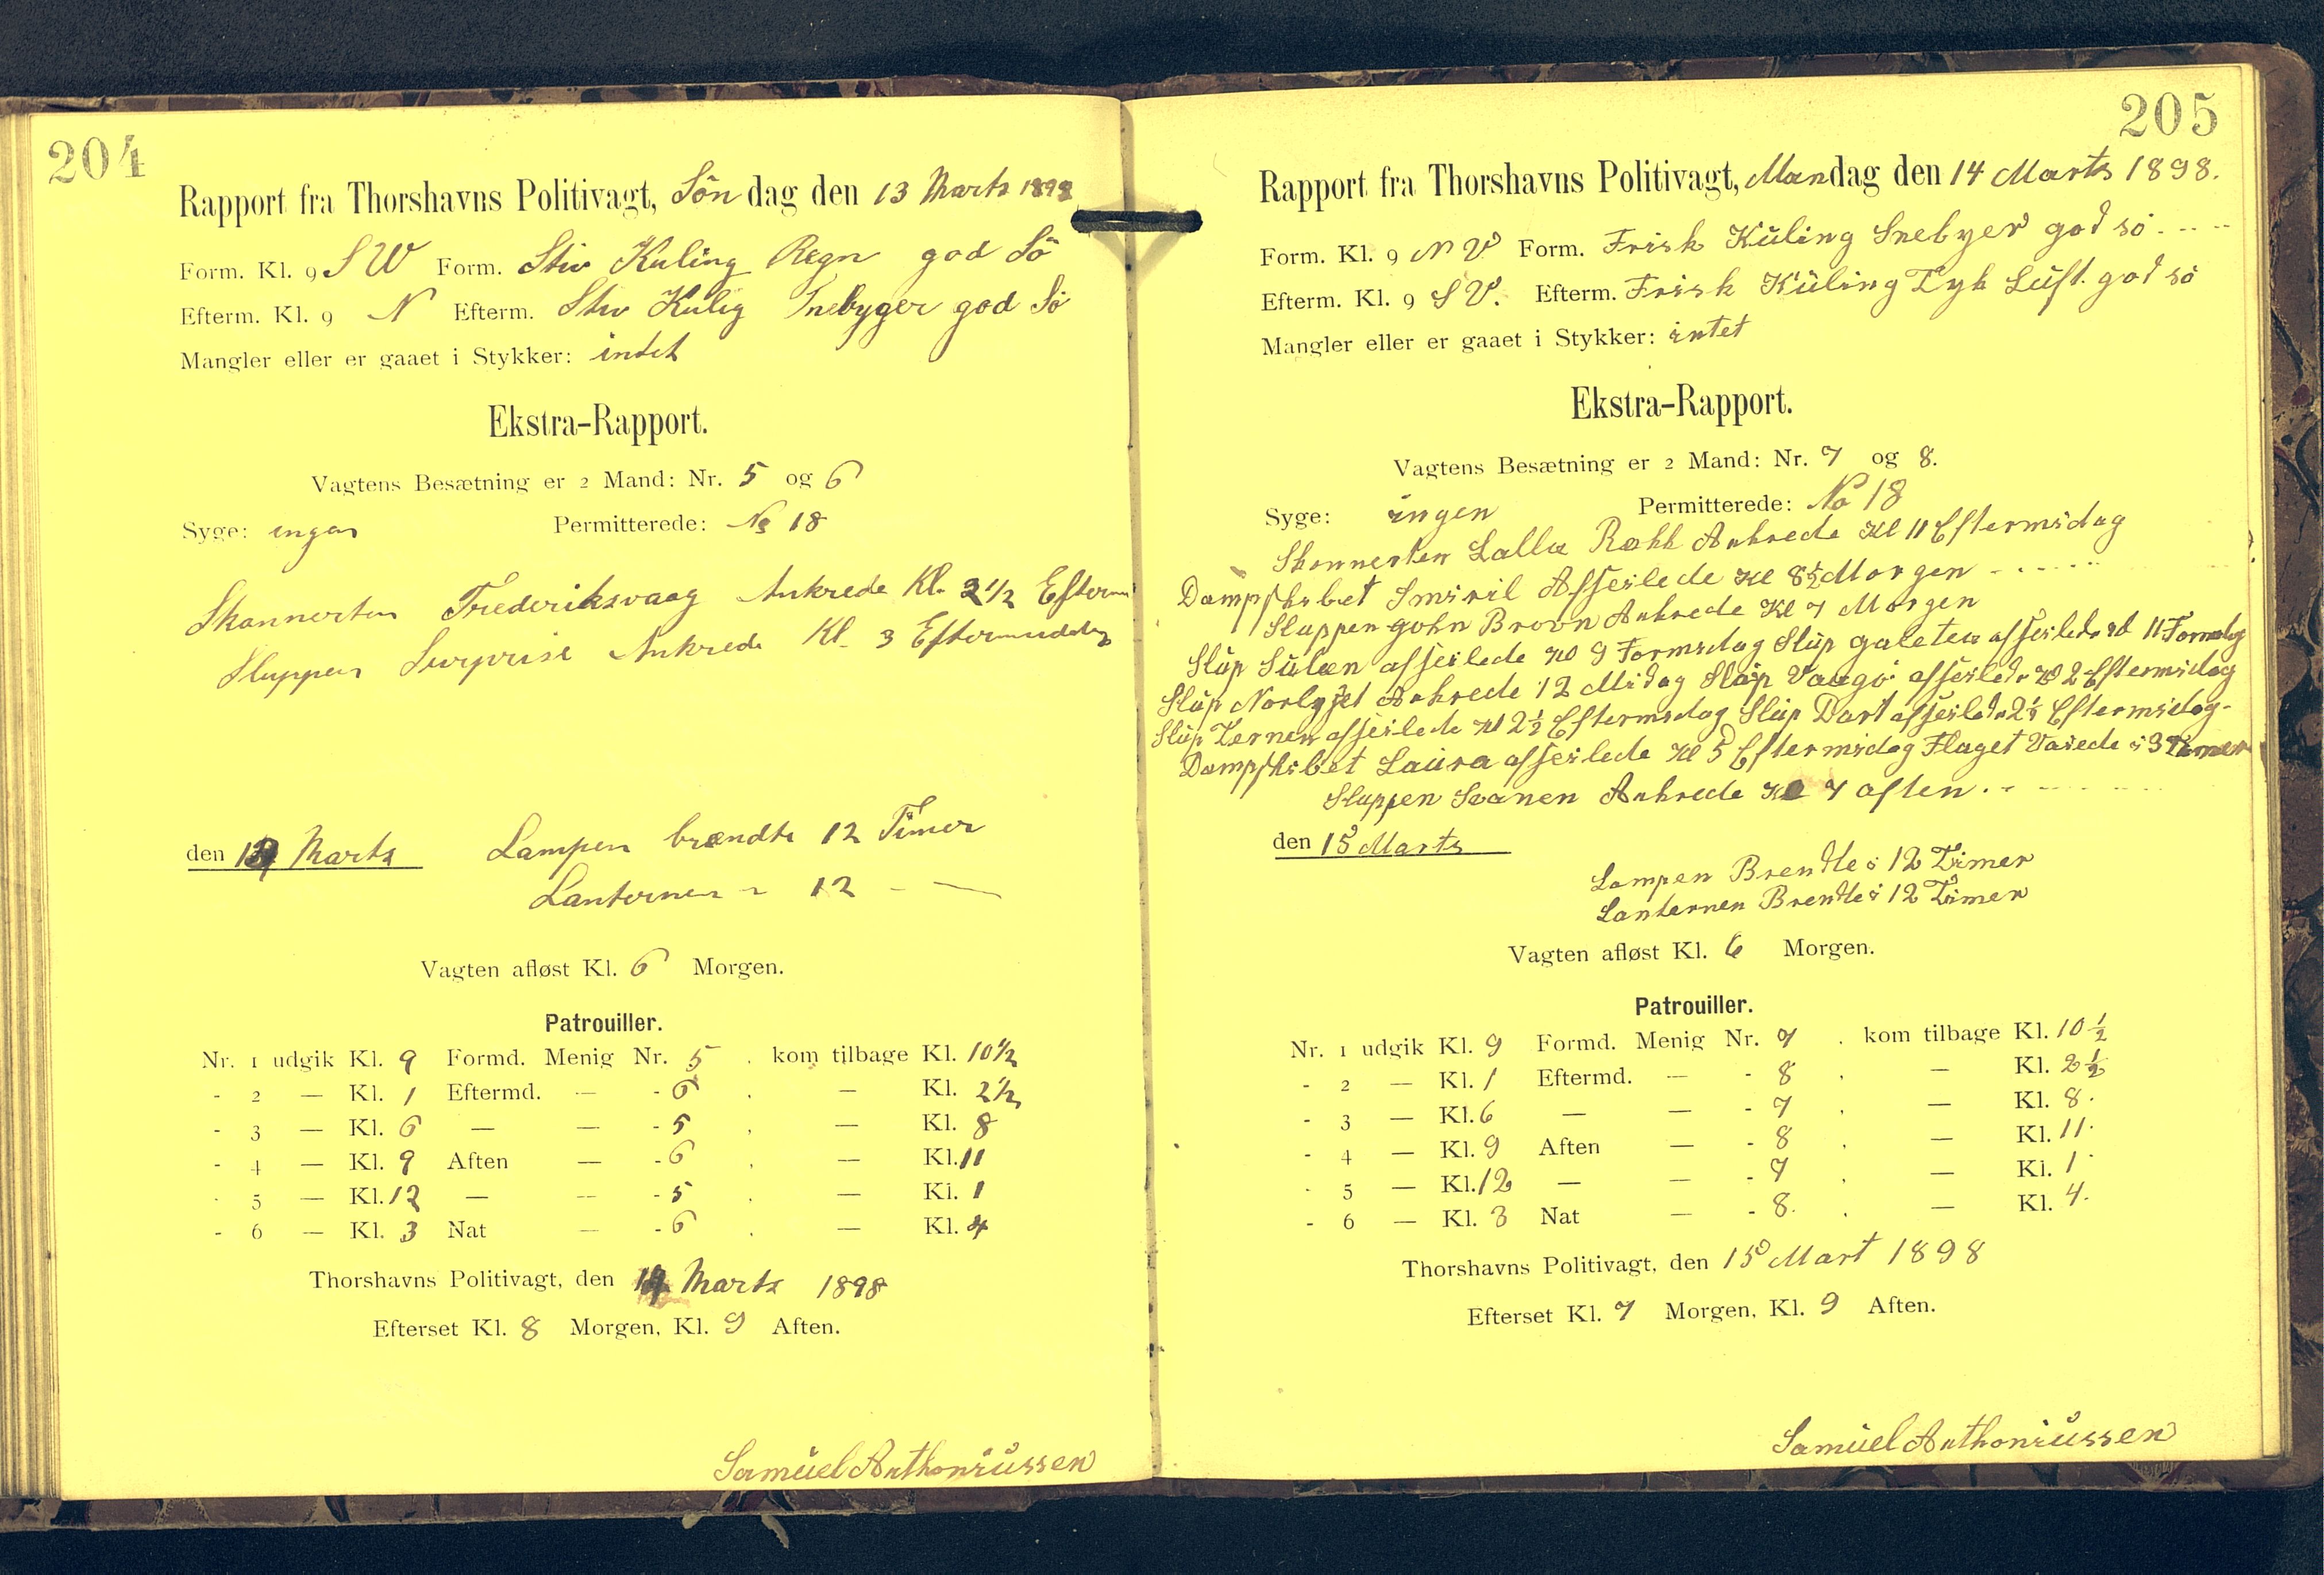 204
Rapport fra Thorshavns Politivagt, Søndag den 13 Marts 1898
Form. Kl. 9 S W Form. Stiv Kuling Regn god Sö
Efterm. Kl. 9 N Efterm. Stiv Kulig Snebyger god Sö
Mangler eller er gaaet i Stykker: indet
Ekstra-Rapport.
Vagtens Besætning er 2 Mand: Nr. 5 og 6
Syge: ingen Permitterede: No 18
Skonnerten Frederiksvaag Ankrede Kl. 2 1/2 Efterm
Sluppen Surprise Ankrede Kl. 3 Eftermiddag
den 14 Marts Lampen brændte 12 Timer
Lanternen " 12 – —
Vagten afløst Kl. 6 Morgen.
Patrouiller.
Nr. 1 udgik Kl. 9 Formd. Menig Nr. 5 . kom tilbage Kl. 10 1/2
- 2 — Kl. 1 Eftermd. — - 6 . — Kl. 2 1/2
- 3 — Kl. 6 — — - 5 . — Kl. 8
- 4 — Kl. 9 Aften — - 6 . — Kl. 11
- 5 — Kl. 12 — — - 5 . — Kl. 1
- 6 — Kl. 3 Nat — - 6 . — Kl. 4
Thorshavns Politivagt, den 14 Marts 1898
Efterset Kl. 8 Morgen, Kl. 9 Aften.
Samuel Anthoniussen
205
Rapport fra Thorshavns Politivagt, Mandag den 14 Marts 1898.
Form. Kl. 9 N V Form. Frisk Küling Snebyer god sö
Efterm. Kl. 9 S V. Efterm. Frisk Küling Tyk Luft. god sö
Mangler eller er gaaet i Stykker: intet
Ekstra-Rapport.
Vagtens Besætning er 2 Mand: Nr. 7 og 8.
Syge: ingen Permitterede: No 18
Skonnerten Lalla Rokk Ankrede Kl 11 Eftermidag
Dampskibet Smiril Afseilede Kl 8 1/2 Morgen
Sluppen John Brovn Ankrede Kl 7 Morgen
Slup Sulen afseilede Kl 9 Formidag Slup galeten afseilede Kl 11 Formdag
Slup Norlyset Ankrede 12 Midag Slup Vaagö afseilede Kl 2 Eftermidag
Slup Ternen afseilede Kl 2 1/2 Eftermidag Slup Dart afseilede 2 1/2 Eftermidag-
Dampskibet Laura afseilede Kl 5 Eftermidag Flaget Vaiede i 3 Timer
Sluppen Svanen Ankrede Kl 7 aften.
den 15 Marts
Lampen Brendte i 12 Timer
Lanternen Brendte i 12 Timer
Vagten afløst Kl. 6 Morgen.
Patrouiller.
Nr. 1 udgik Kl. 9 Formd. Menig Nr. 7 . kom tilbage Kl. 10 1/2
- 2 — Kl. 1 Eftermd. — - 8 . — Kl. 2 1/2
- 3 — Kl. 6 — — - 7 . — Kl. 8.
- 4 — Kl. 9 Aften — - 8 . — Kl. 11.
- 5 — Kl. 12 — — - 7 . — Kl. 1
- 6 — Kl. 3 Nat — - 8. . — Kl. 4.
Thorshavns Politivagt, den 15 Mart 1898
Efterset Kl. 7 Morgen, Kl. 9 Aften.
Samuel Anthoniussen